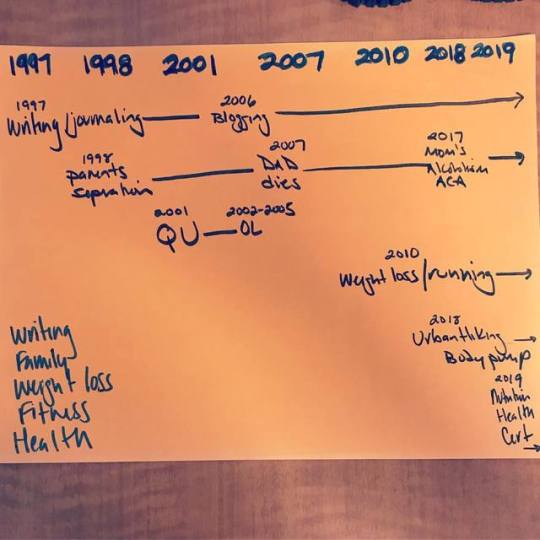 1997 1998 2001 2007 2010 2018 2019
1997
Writing/journaling
2006
Blogging
1998
parents
sepration
2007
DAD
dies
2017
Mom's
Alcoholism
ACA
2001
QU
2002-2005
OL
2010
Weight loss/running
2018
Urban Hiking
Body pump
2019
Nutrition
Health
Cert
Writing
Family
Weight loss
Fitness
Health